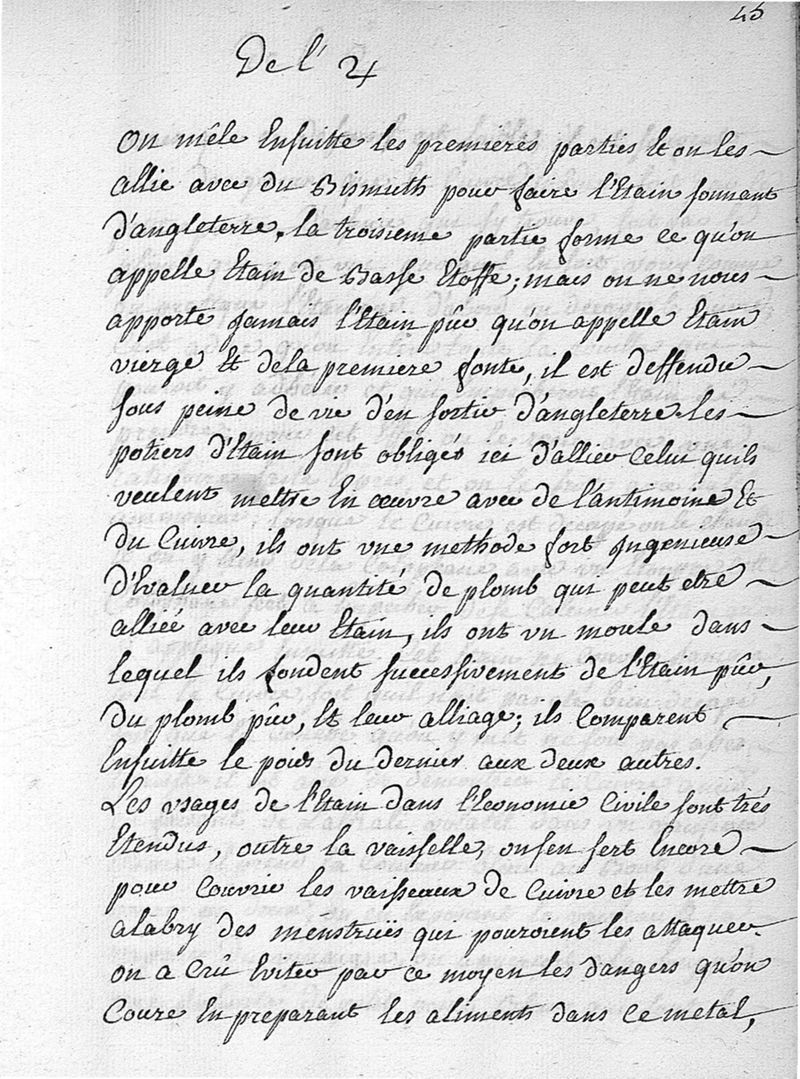 45
De l' ♃
On mêle Ensuitte les premieres parties Et on les
allie avec du Bismuth pour faire l'Etain sonnant
d'angleterre, la troisieme partie forme ce qu'on
appelle Etain de Basse Etoffe; mais on ne nous
apporte jamais l'Etain pûr qu'on appelle Etain
vierge Et dela premiere fonte, il est deffendu
sous peine de vie d'en sortir d'angleterre. les
potiers d'Etain sont obligés ici d'allier Celui quils
veulent mettre En œuvre avec de l'antimoine Et
du Cuivre, ils ont une methode fort Ingenieuse
d'Evaluer la quantité de plomb qui peut etre
alliée avec leur Etain, ils ont un moule dans
lequel ils fondent successivement de l'Etain pûr,
du plomb pûr, Et leur alliage; ils Comparent
Ensuitte le poids du dernier aux deux autres.
Les usages de l'Etain dans l'Economie Civile sont trés
Etendus, outre la vaisselle, on sen sert Encore
pour Couvrir les vaisseaux de Cuivre et les mettre
alabry des menstrues qui pouroient les attaquer.
on a Crû Eviter par ce moyen les dangers qu'on
Coure En preparant les aliments dans Ce metal,